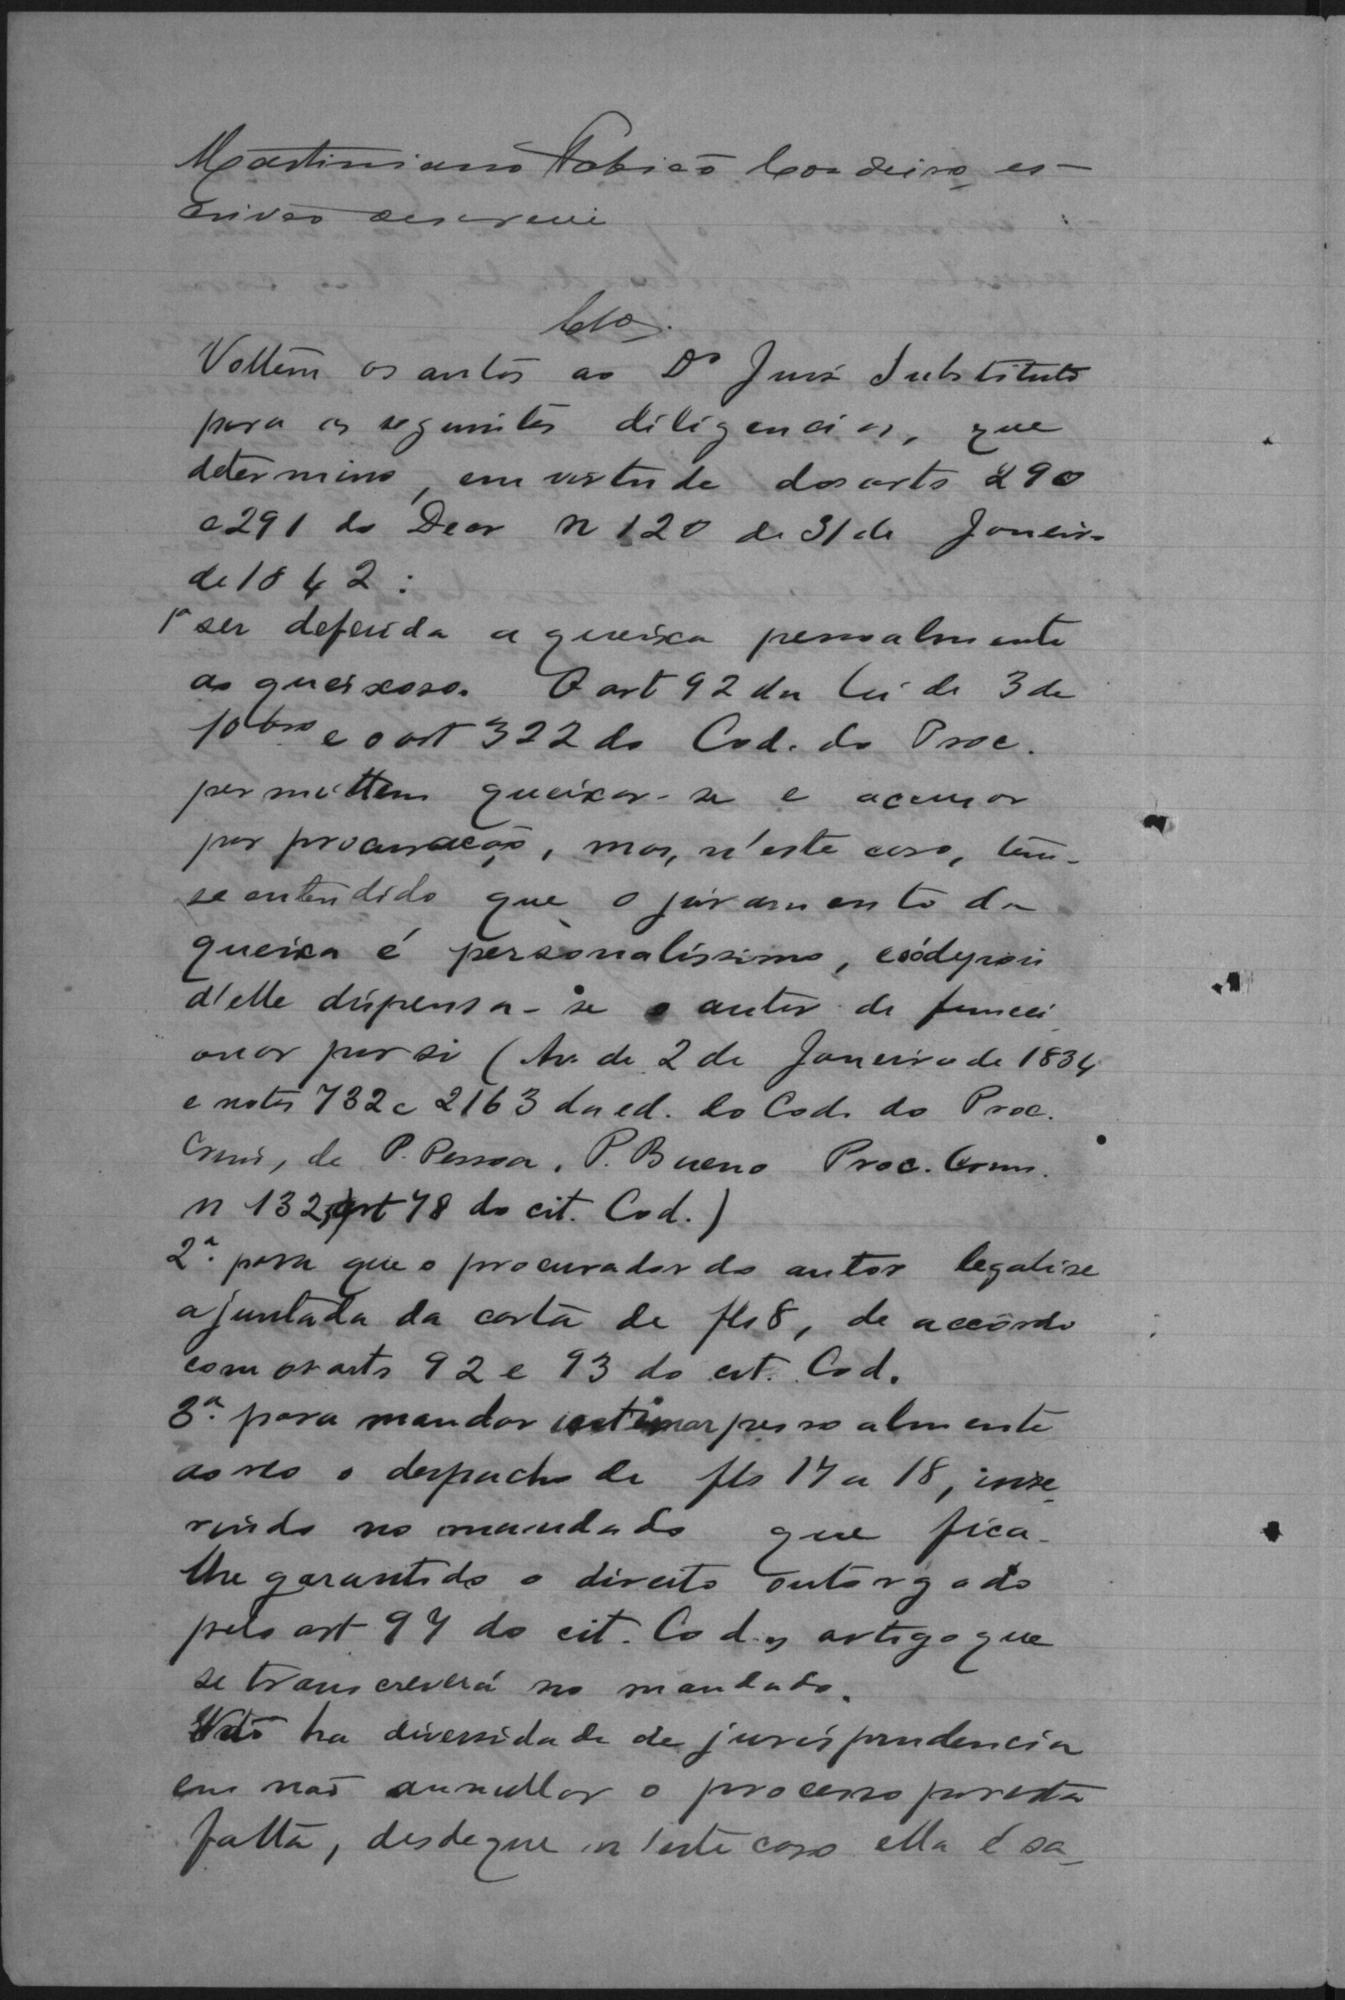 Martiniano Fabião Cordeiro, es-
crivão escrevi
Clos.
Voltem os autos ao Dr Juiz Substituto
para as seguintes diligencias, que
determino, em virtude dos arts 290
e 291 do Decr n 120 de 31 de Janeiro
de 1842:
1ª ser deferida a queixa pessoalmente
ao queixoso. O art 92 da Lei de 3 de
10bro e o art 322 do Cod. do Proc.
permittem queixar-se e accusar
por procuração, mas, n'este caso, tem-
se entendido que o juramento da
queixa é personalissimo, e só depois
d'elle dispensa-se o autor de funcci
onar por si (Av. de 2 de Janeiro de 1834
e notas 732 e 2163 da ed. do Cod. do Proc.
Crim, de P. Pessoa, P. Bueno Proc. Crim.
n 132, art 78 do cit. Cod.)
2ª. para que o procurador do autor legalise
a juntada da carta de fls 8, de accôrdo
com os arts 92 e 93 do cit. Cod.
3ª. para mandar intimar pessoalmente
ao réo o despacho de fls 17 a 18, inse-
rindo no mandado que fica-
lhe garantido o direito outorgado
pelo art 97 do cit. Cod., artigo que
se transcreverá no mandado.
Não ha diversidade de jurisprudencia
em não annullar o processo por esta
falta, desde que n'este caso ella é sa-